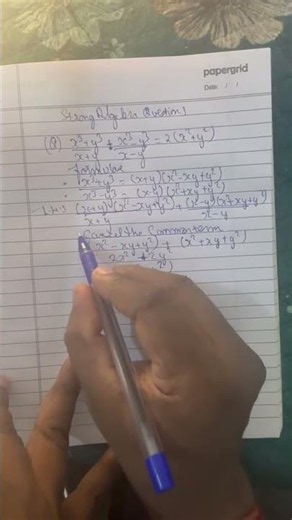 papergrid
Date: / /
Strong Algebra Question 1
(Q) x³+y³/x+y + x³-y³/x-y = 2(x²+y²)
Formulae
• x³+y³ = (x+y)(x²-xy+y²)
• x³-y³ = (x-y)(x²+xy+y²)
LHS (x+y)(x²-xy+y²)/x+y + (x-y)(x²+xy+y²)/x-y
Cancel the Common term
(x²-xy+y²) + (x²+xy+y²)
2x² + 2y